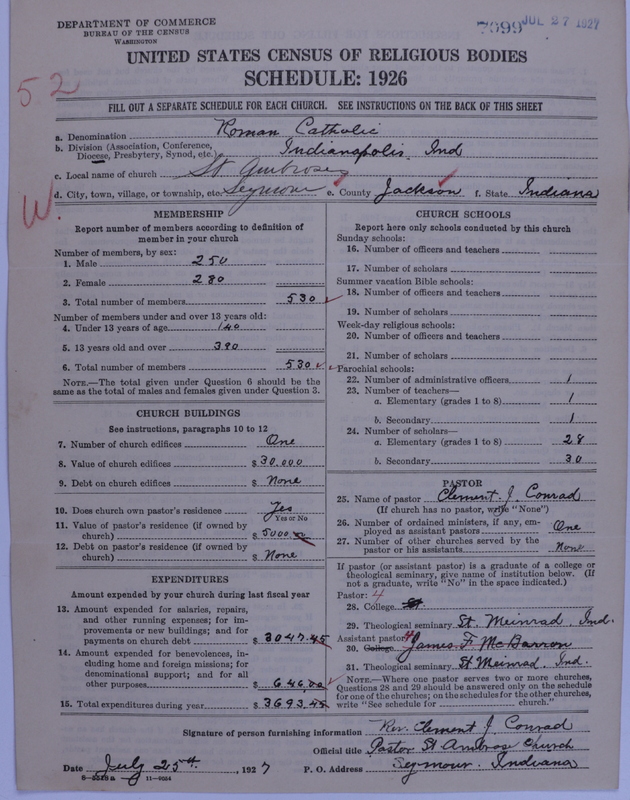 DEPARTMENT OF COMMERCE
BUREAU OF THE CENSUS
WASHINGTON
7399 JUL 27 1927
UNITED STATES CENSUS OF RELIGIOUS BODIES
SCHEDULE: 1926
52
FILL OUT A SEPARATE SCHEDULE FOR EACH CHURCH. SEE INSTRUCTIONS ON THE BACK OF THIS SHEET
a. Denomination Roman Catholic
b. Division (Association, Conference, Diocese, Presbytery, Synod, etc.) Indianapolis, Ind
c. Local name of church St Ambrose
d. City, town, village, or township, etc. Seymour e. County Jackson f. State Indiana
W.
MEMBERSHIP
Report number of members according to definition of
member in your church
Number of members, by sex:
1. Male 250
2. Female 280
3. Total number of members 530
Number of members under and over 13 years old:
4. Under 13 years of age 140
5. 13 years old and over 390
6. Total number of members 530
NOTE.—The total given under Question 6 should be
same as the total of males and females given under Question 3.
CHURCH BUILDINGS
See instructions, paragraphs 10 to 12
7. Number of church edifices One
8. Value of church edifices $ 30,000
9. Debt on church edifices $ None
10. Does church own pastor's residence Yes
Yes or No
11. Value of pastor's residence (if owned by
church) $ 5000.00
12. Debt on pastor's residence (if owned by
church) $ None
EXPENDITURES
Amount expended by your church during last fiscal year
13. Amount expended for salaries, repairs,
and other running expenses; for im-
provements or new buildings; and for
payments on church debt $ 3047.45
14. Amount expended for benevolences, in-
cluding home and foreign missions; for
denominational support; and for all
other purposes $ 646.00
15. Total expenditures during year $ 3693.45
CHURCH SCHOOLS
Report here only schools conducted by this church
Sunday schools:
16. Number of officers and teachers
17. Number of scholars
Summer vacation Bible schools:
18. Number of officers and teachers
19. Number of scholars
Week-day religious schools:
20. Number of officers and teachers
21. Number of scholars
Parochial schools:
22. Number of administrative officers 1
23. Number of teachers—
a. Elementary (grades 1 to 8) 1
b. Secondary 1
24. Number of scholars—
a. Elementary (grades 1 to 8) 28
b. Secondary 30
PASTOR
25. Name of pastor Clement J. Conrad
(If church has no pastor, write "None")
26. Number of ordained ministers, if any, em-
ployed as assistant pastors One
27. Number of other churches served by the
pastor or his assistants None
If pastor (or assistant pastor) is a graduate of a college or
theological seminary, give name of institution below. (If
not a graduate, write "No" in the space indicated.)
Pastor: 4
28. College St.
29. Theological seminary St. Meinrad, Ind.
Assistant pastor: 4
30. College James F. McBarron
31. Theological seminary St Meinrad, Ind.
NOTE.—Where one pastor serves two or more churches,
Questions 28 and 29 should be answered only on the schedule
for one of the churches; on the schedules for the other churches,
write "See schedule for church."
Signature of person furnishing information Rev. Clement J. Conrad
Official title Pastor St Ambrose Church
Date July 25th, 1927 P. O. Address Seymour, Indiana
11—6054